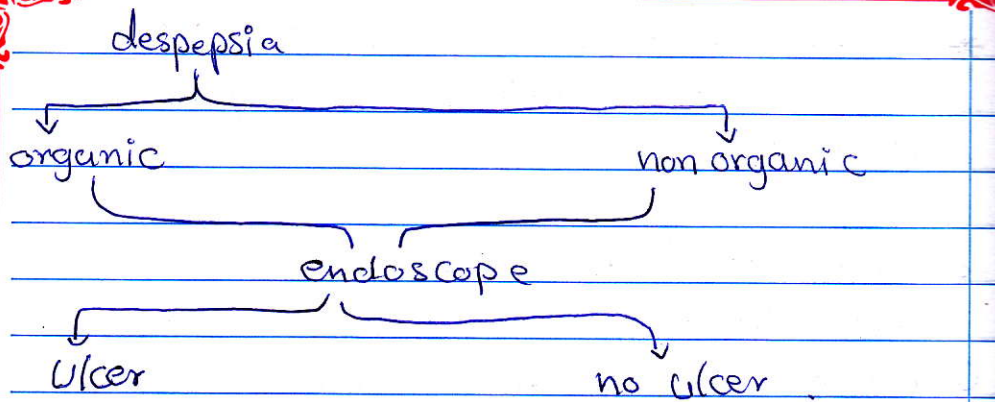 despepsia
organic non organic
endoscope
Ulcer no ulcer.